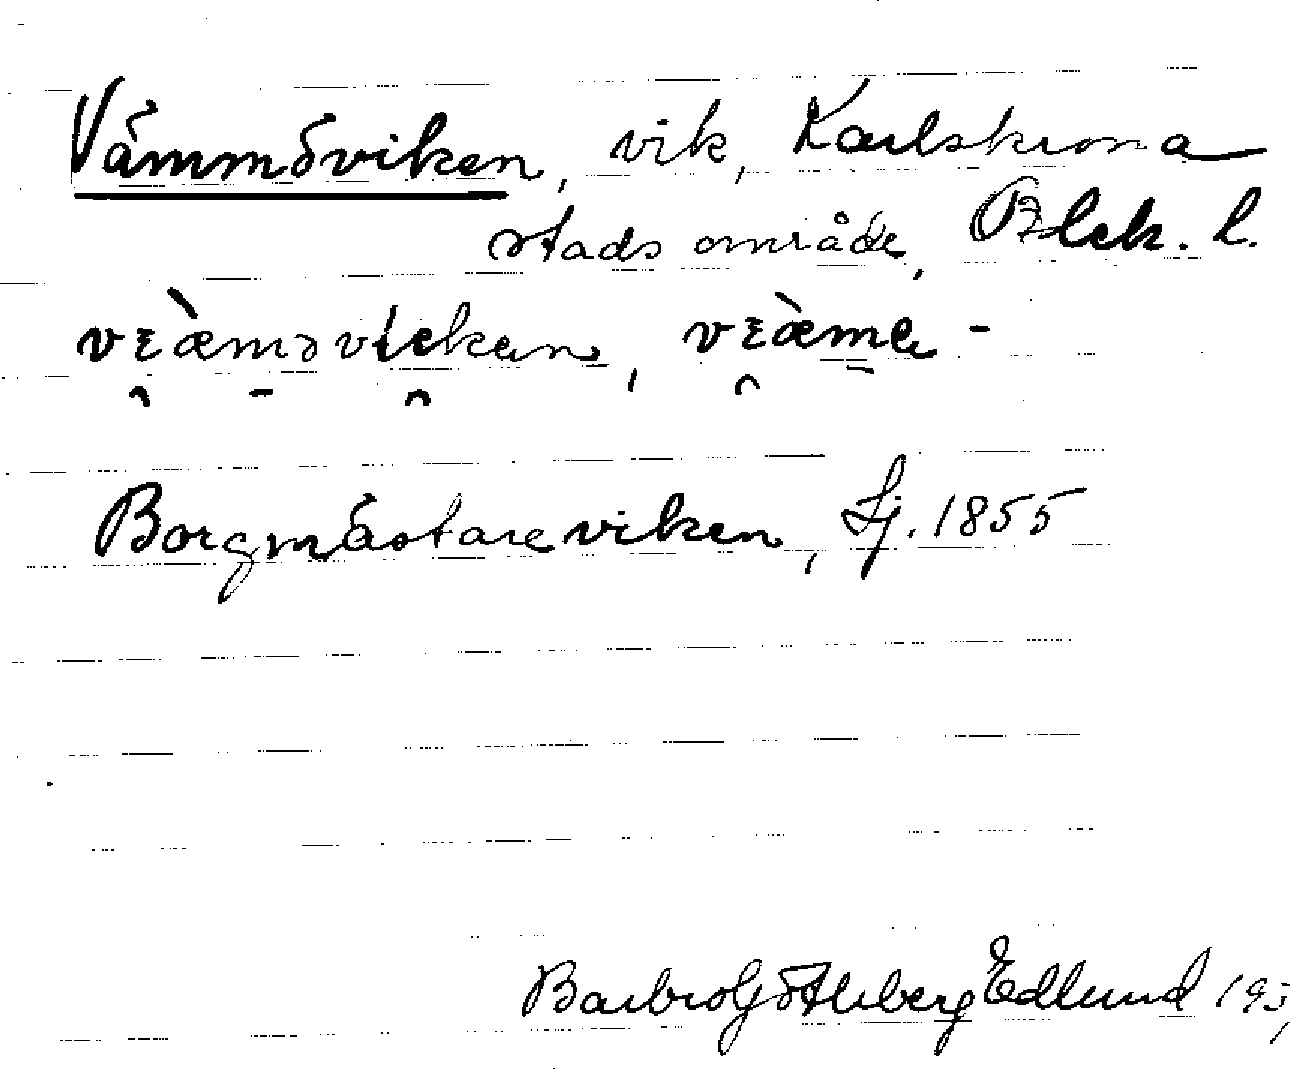 Vämmöviken, vik, Karlskrona
stads område, Blek. l.
vɛæ̀məvɩekən, vɛæ̀mə -
Borgmästareviken, Sj. 1855
Barbro Götleberg Edlund 193